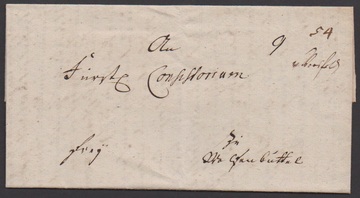 An 9 54
Fürstl Consistorium
frey
Zu
Wolfenbüttel